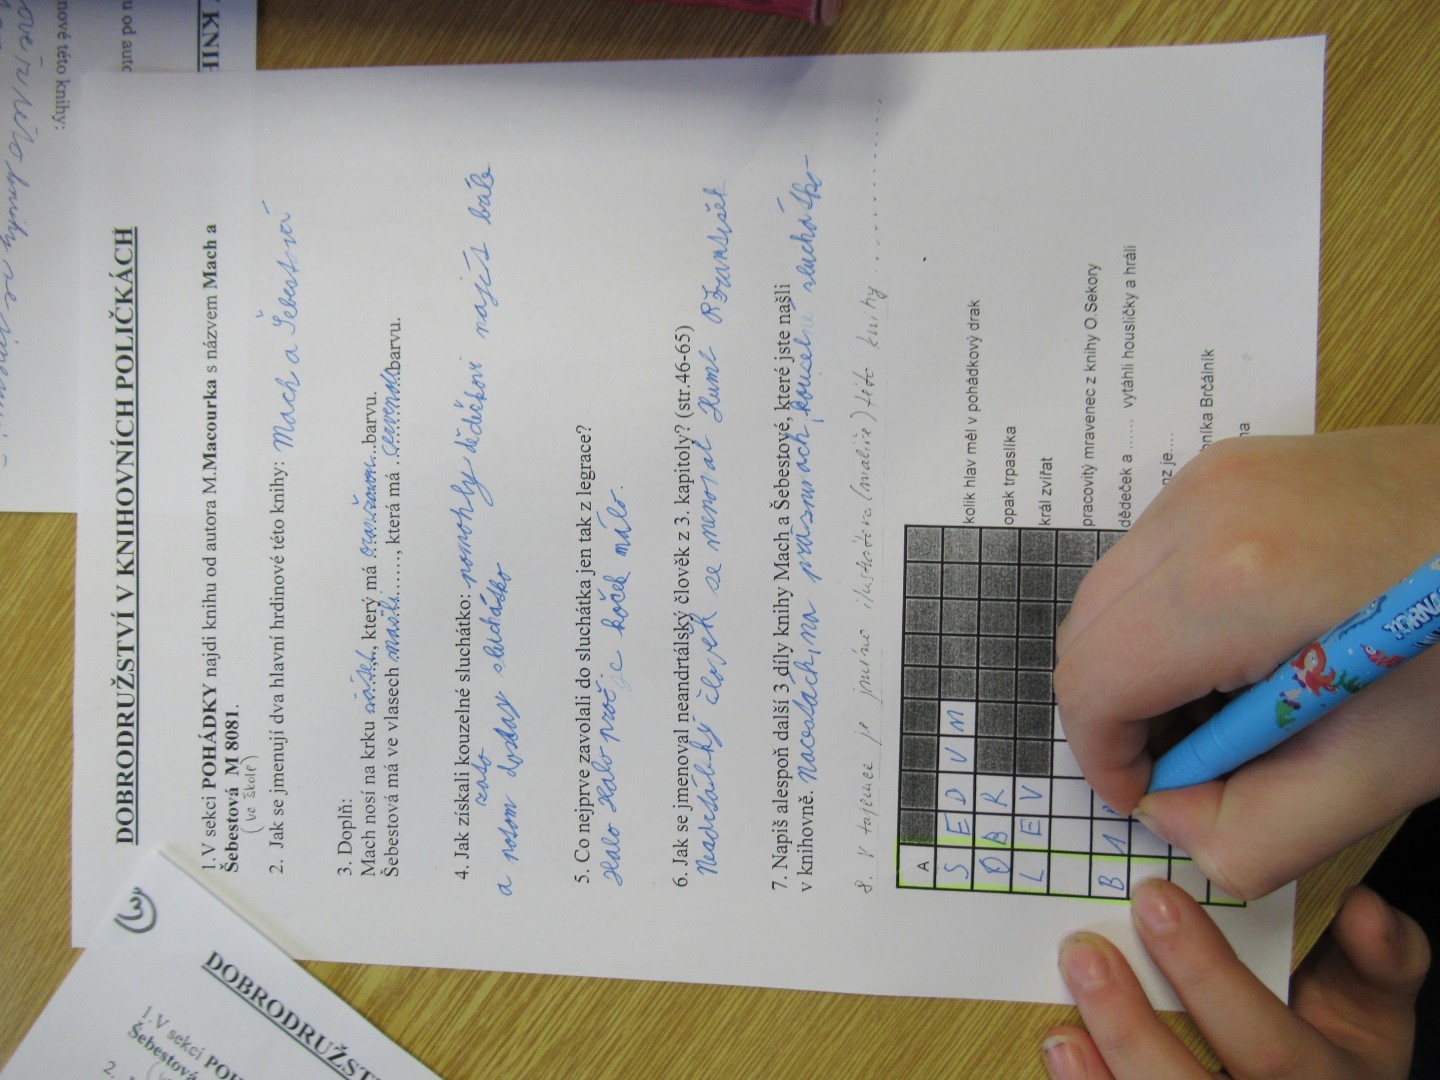 DOBRODRUŽSTVÍ V KNIHOVNÍCH POLIČKÁCH
1.V sekci POHÁDKY najdi knihu od autora M.Macourka s názvem Mach a
Šebestová M 8081.
(ve škole)
2. Jak se jmenují dva hlavní hrdinové této knihy: Mach a Šebestová
3. Doplň:
Mach nosí na krku šátek, který má oranžovou barvu.
Šebestová má ve vlasech mašli, která má červenou barvu.
4. Jak získali kouzelné sluchátko: pomohly dědečkovi najít brýle
zato
a potom dostaly sluchátko
5. Co nejprve zavolali do sluchátka jen tak z legrace?
Halo Halo proč je koček málo.
6. Jak se jmenoval neandrtálský člověk z 3. kapitoly? (str.46-65)
člověk se jmenoval
7. Napiš alespoň další 3 díly knihy Mach a Šebestové, které jste našli
v knihovně. na cestách, na prázdninách, kouzelné sluchátko
8. V tajence je jméno ilustrátora (malíře) této knihy........
A
SEDUM kolik hlav měl v pohádkový drak
OBR opak trpaslíka
LEV král zvířat
pracovitý mravenec z knihy O.Sekory
B dědeček a ...... vytáhli housličky a hráli
nz je....
níka Brčálník
na
DOBRODRUŽST
1.V sekci POH
Šebestová
2.
KNIH
u od auto
nové této knihy: